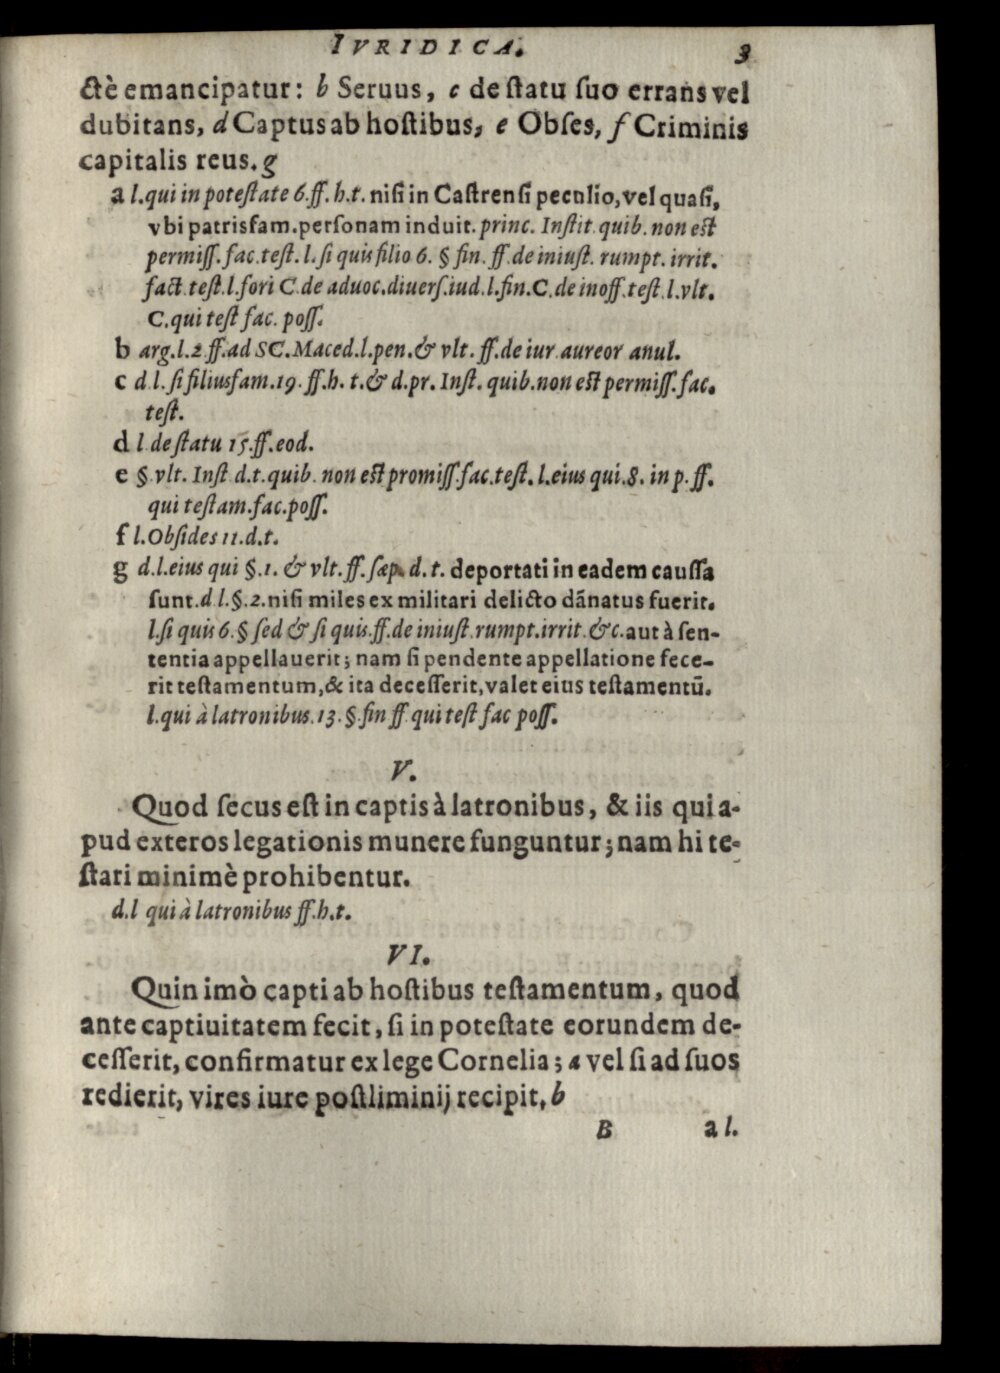 IVRIDICA. 3
ctè emancipatur: b Seruus, c de ſtatu ſuo errans vel
dubitans, d Captus ab hoſtibus, e Obſes, f Criminis
capitalis reus. g
a l. qui in poteſtate 6. ff. h.t. niſi in Caſtrenſi peculio, vel quaſi,
vbi patrisfam. perſonam induit. princ. Inſtit. quib. non eſt
permiſſ. fac. teſt. l. ſi quis filio 6. § fin. ff. de iniuſt. rumpt. irrit.
fact. teſt. l. fori C. de aduoc. diuerſ. iud. l. fin. C. de inoff. teſt. l. vlt.
C. qui teſt fac. poſſ.
b arg. l. 2. ff. ad SC. Maced. l. pen. & vlt. ff. de iur aureor anul.
c d l. ſi filiusfam. 19. ff. h. t. & d. pr. Inſt. quib. non eſt permiſſ. fac.
teſt.
d l de ſtatu 15. ff. eod.
e §. vlt. Inſt d. t. quib. non eſt promiſſ. fac. teſt. l. eius qui. 8. in p. ff.
qui teſtam. fac. poſſ.
f l. Obſides 11. d. t.
g d. l. eius qui §. 1. & vlt. ff. ſæp. d. t. deportati in eadem cauſſa
ſunt. d l. §. 2. niſi miles ex militari delicto dānatus fuerit.
l. ſi quis 6. § ſed & ſi quis. ff. de iniuſt. rumpt. irrit. &c. aut à ſen-
tentia appellauerit; nam ſi pendente appellatione fece-
rit teſtamentum, & ita deceſſerit, valet eius teſtamentū.
l. qui à latronibus. 13. §. fin ff. qui teſt fac poſſ.
V.
Quod ſecus eſt in captis à latronibus, & iis qui a-
pud exteros legationis munere funguntur; nam hi te-
ſtari minimè prohibentur.
d. l qui à latronibus ff. h. t.
VI.
Quin imò capti ab hoſtibus teſtamentum, quod
ante captiuitatem fecit, ſi in poteſtate eorundem de-
ceſſerit, confirmatur ex lege Cornelia; a vel ſi ad ſuos
redierit, vires iure poſtliminij recipit. b
B a l.